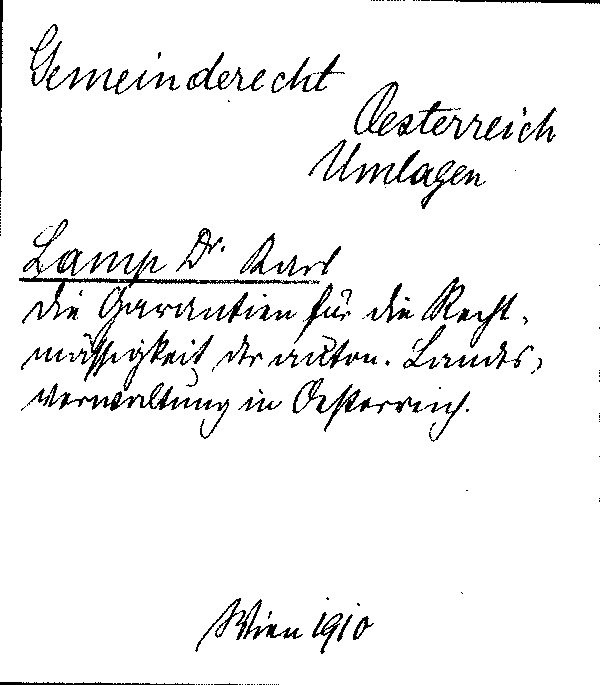 Gemeinderecht
Oesterreich
Umlagen
Lamp Dr. Karl
Die Garantien für die Recht-
mässigkeit der auton. Landes-
verwaltung in Oesterreich.
Wien 1910